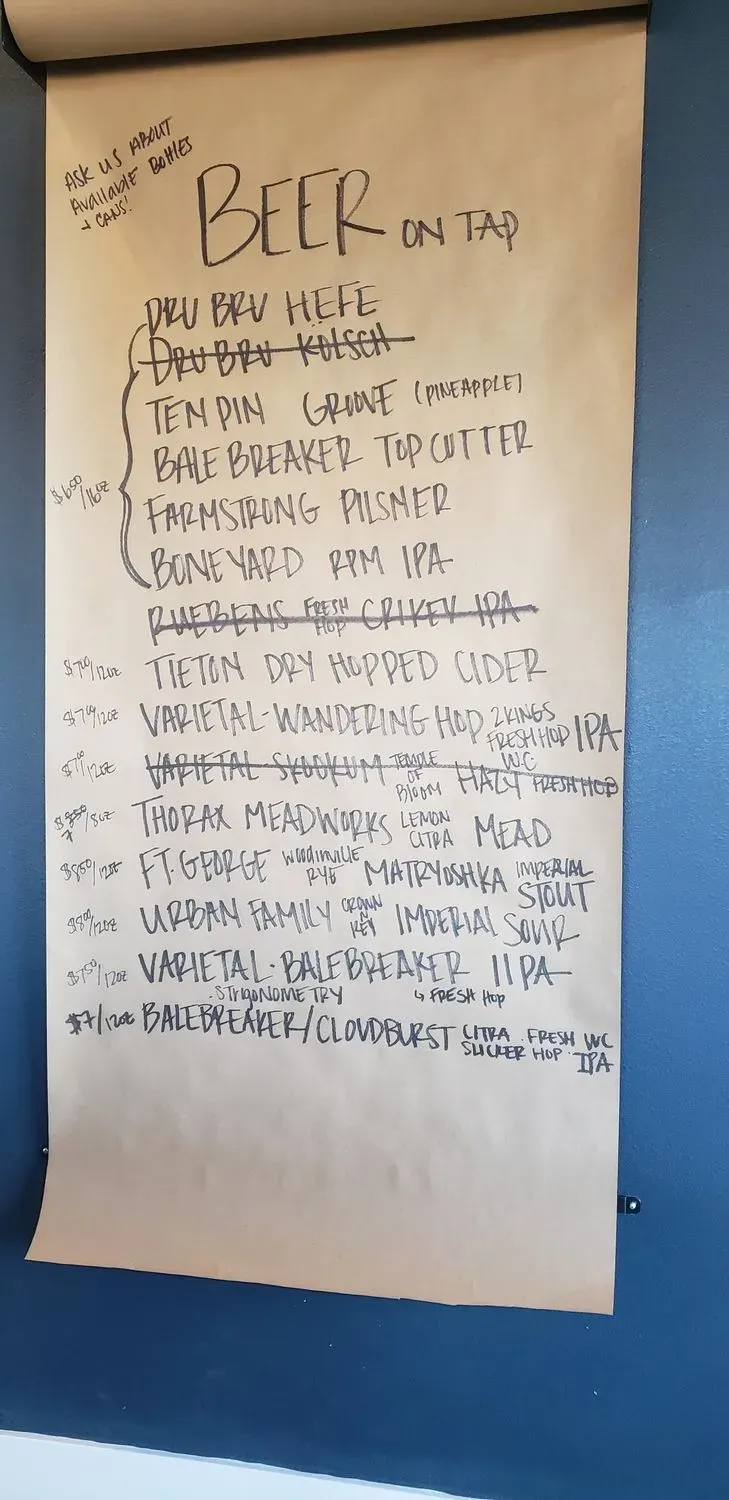 ASK US ABOUT
AVAILABLE BOTTLES
+ CANS!
BEER ON TAP
DRU BRU HEFE
DRU BRU KÖLSCH
TEN PIN GROOVE (PINEAPPLE)
BALE BREAKER TOP CUTTER
FARMSTRONG PILSNER
$6.50/16oz
BONEYARD RPM IPA
RUEBENS FRESH HOP CRIKEY IPA
$7.00/12oz TIETON DRY HOPPED CIDER
$7.00/12oz VARIETAL-WANDERING HOP 2 KINGS FRESH HOP IPA
$7.00/12oz VARIETAL SKOOKUM TEMPLE OF BLOOM W.C HAZY FRESH HOP
/8oz THORAX MEADWORKS LEMON CITRA MEAD
$8.50/12oz FT. GEORGE WOODINVILLE RYE MATRYOSHKA IMPERIAL STOUT
$8.00/12oz URBAN FAMILY CROWN N KEY IMPERIAL SOUR
$7.50/12oz VARIETAL · BALEBREAKER IIPA
·STRIGONOMETRY ↳ FRESH HOP
$7/12oz BALEBREAKER/CLOUDBURST CITRA SLICKER · FRESH HOP · WC IPA